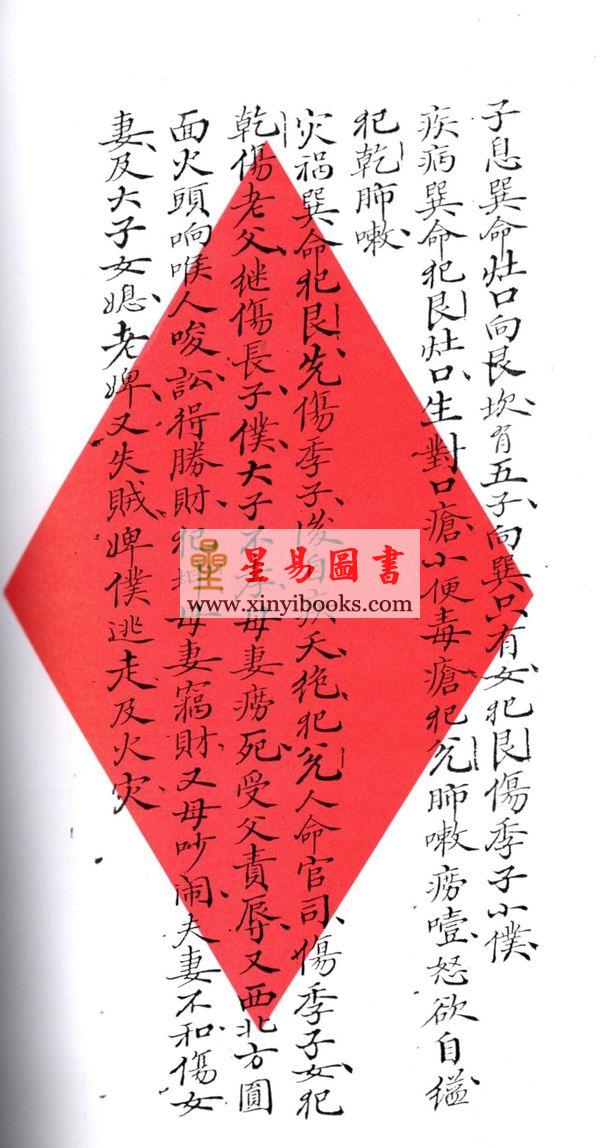 子息巽命灶口向艮坎有五子向巽只有女犯艮傷季子小僕
疾病巽命犯艮灶口生對口瘡小便毒瘡犯兌肺嗽癆噎怒欲自縊
犯乾肺嗽
灾禍巽命犯艮先傷季子後自疾夭绝犯兌人命官司傷季子女犯
乾傷老父继傷長子僕大子不孝母妻癆死受父責辱又西北方圓
面火頭响喉人唆訟得勝財犯母妻竊財又母吵闹夫妻不和傷女
妻及大子女媳老婢又失賊婢僕逃走及火灾
星易圖書
www.xinyibooks.com